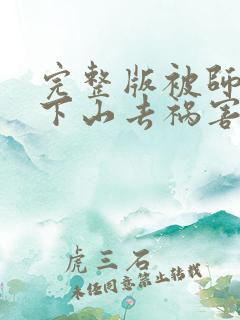 完整版被师
下山去祸害
虎三石
未经同意禁止转载